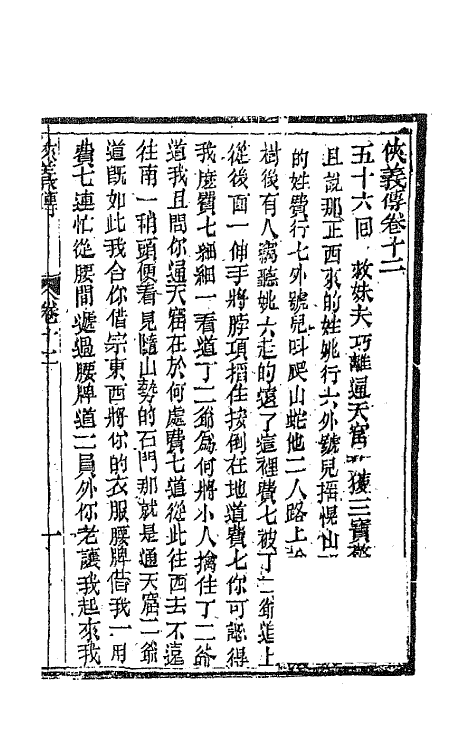 俠義傳卷十二
五十六回 救妹夫巧離通天窟 獲三寶
且說那正西來的姓姚行六外號兒掐㡆山
的姓費行七外號兒叫爬山蛇他二人路上
樹後有人竊聽姚六走的遠了這裡費七被丁二爺追上
從後面一伸手將脖項掐住按倒在地道費七你可認得
我麽費七細細一看道丁二爺為何將小人擒住丁二爺
道我且問你通天窟在於何處費七道從此往西去不遠
往南一稍頭便看見隨山勢的石門那就是通天窟二爺
道旣如此我合你借宗東西將你的衣服腰牌借我一用
費七連忙從腰間遞過腰牌道二員外你老讓我起來我
俠義傳
卷十二
一